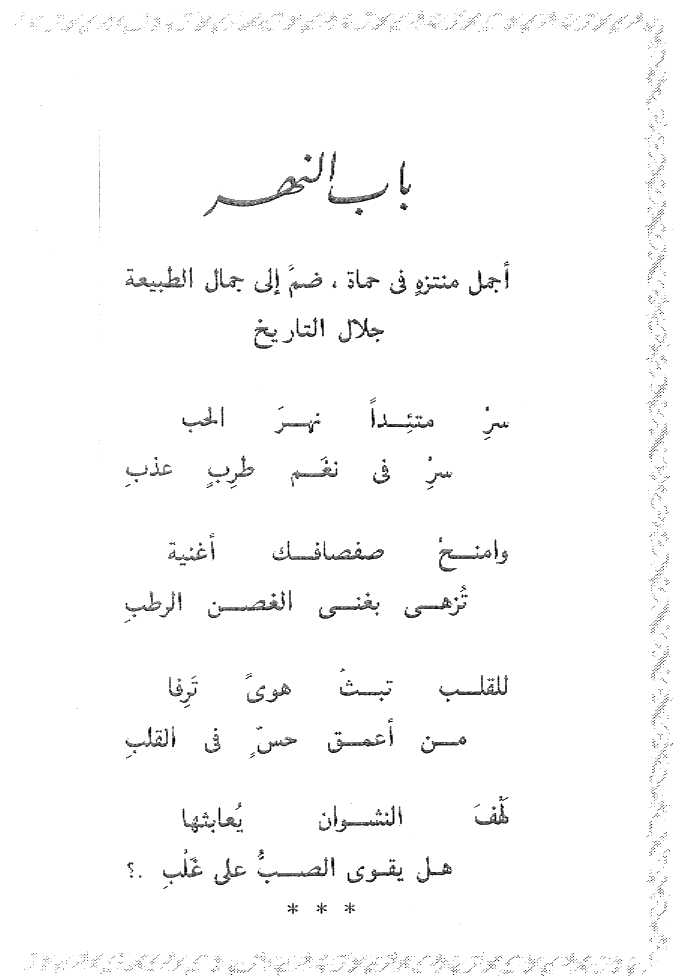 باب النهر
أجمل منتزهٍ فى حماة ، ضمَّ إلى جمال الطبيعة
جلال التاريخ
سرِْ متئِــداً نهــرَ الحب
سرِْ فى نغَــم طرِبٍ عذبِ
وامنــحْ صفصافــك أغنية
تُزهــى بغنــى الغصــن الرطبِ
للقلــب تبــثُ هوىً تَرِفا
مــن أعمــق حسٍّ فى القلبِ
لَهْفَ النشــوان يُعابثها
هــل يقــوى الصــبُّ على غَلْبِ .؟
* * *